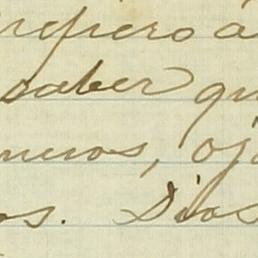 refiero á
saber qu
neros, oj
os. Dios